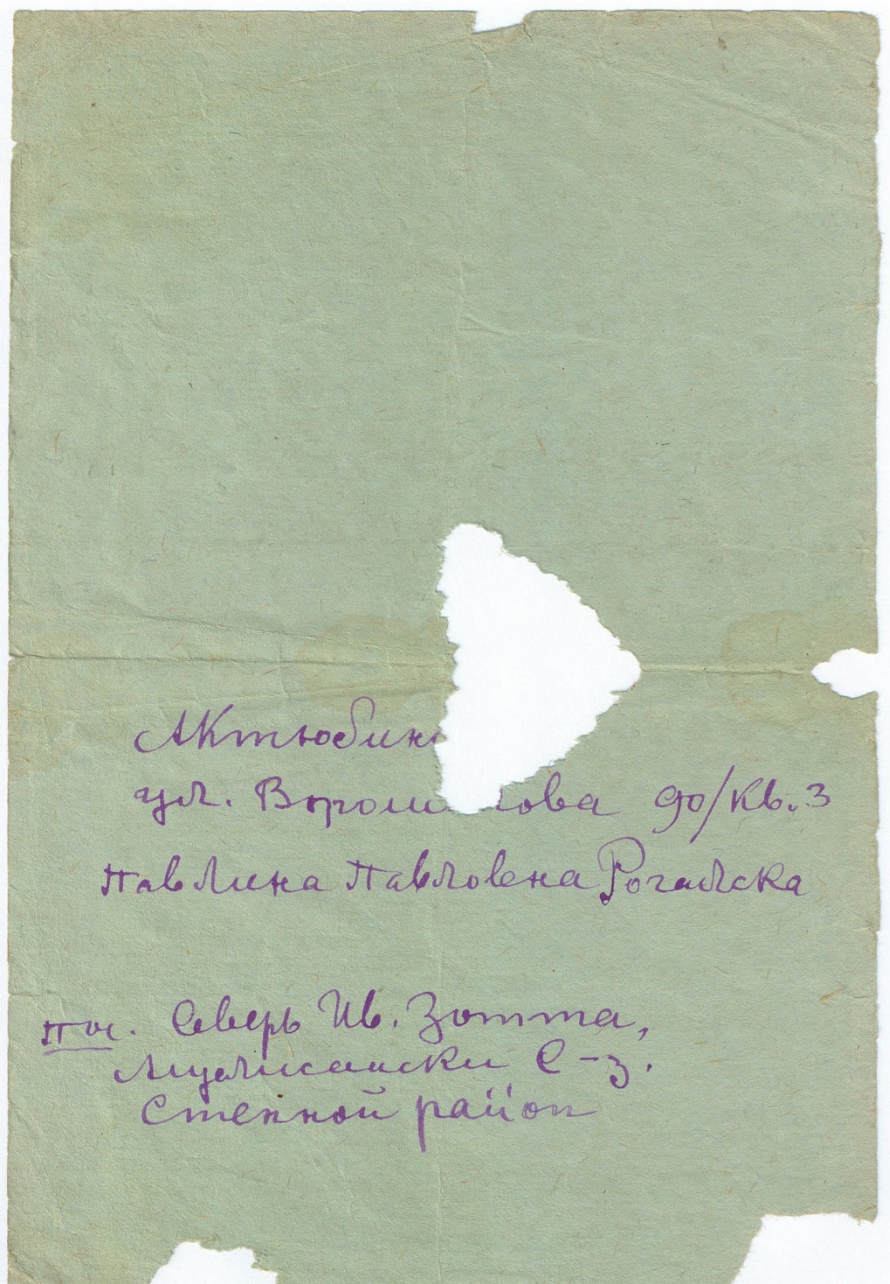 Актюбинс
ул. Ворош лова 90/кв. 3
Павлина Павловена Рогальска
пос. Северь Ив. Зотта,
С-з.
Степной район